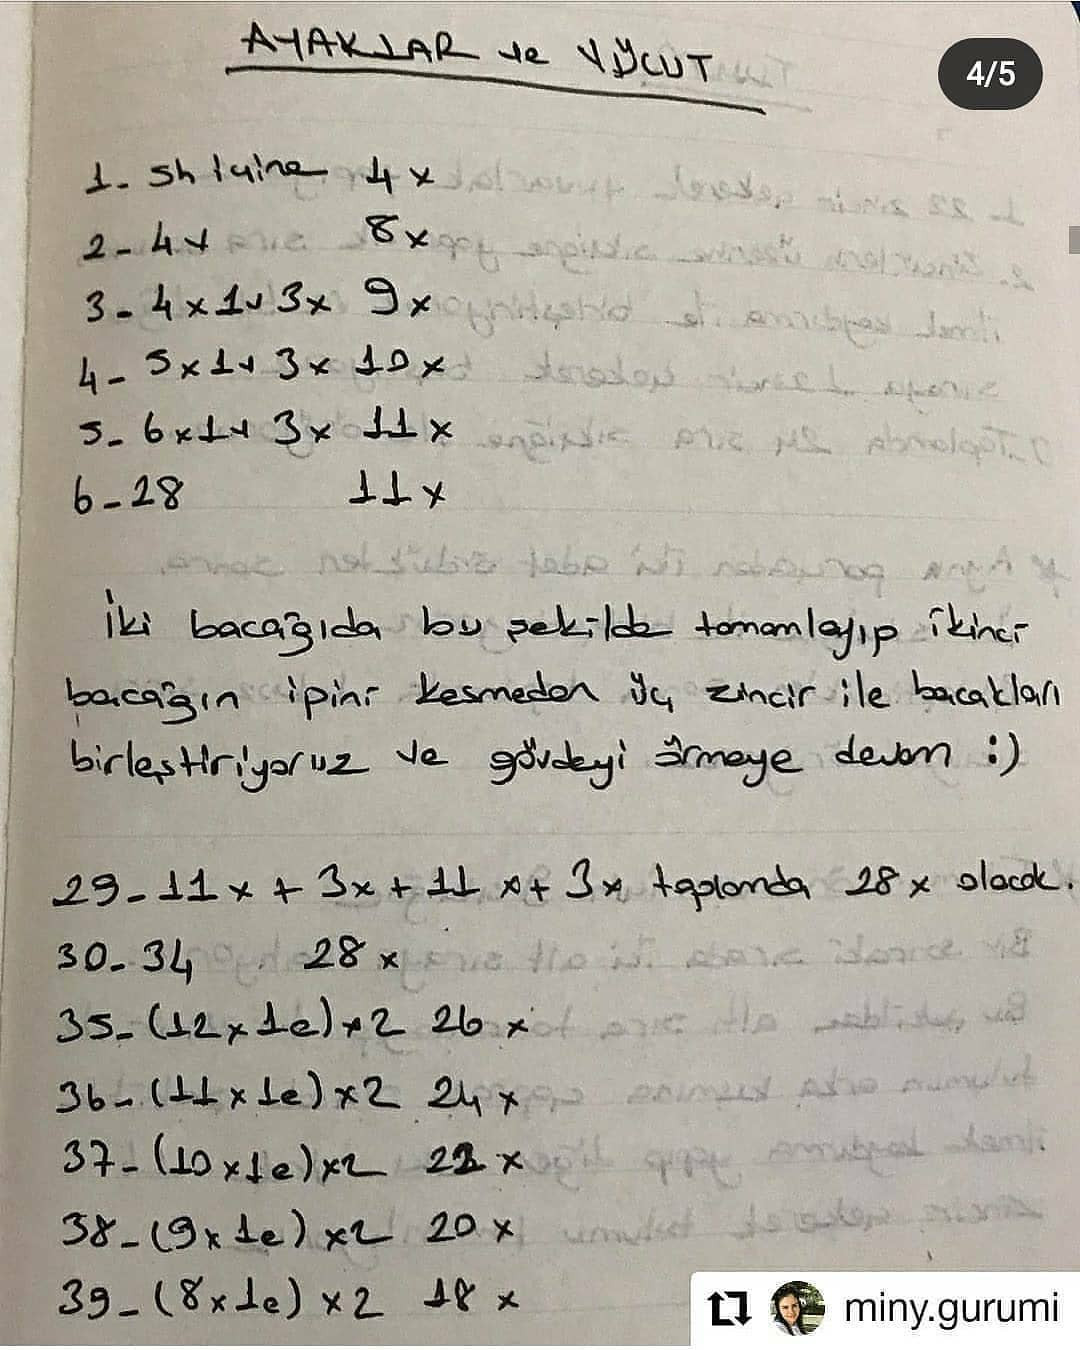 AYAKLAR ve VÜCUT
4/5
1- sh içine 4x
2- 4v 8x
3- 4x1v3x 9x
4- 5x1v3x 10x
5- 6x1v3x 11x
6-28 11x
İki bacağıda bu şekilde tamamlayıp ikinci
bacağın ipini kesmeden üç zincir ile bacakları
birleştiriyoruz ve gövdeyi örmeye devam :)
29- 11x + 3x + 11x + 3x toplamda 28x olacak.
30-34 28x
35- (12x1e)x2 26x
36- (11x1e)x2 24x
37- (10x1e)x2 22x
38- (9x1e)x2 20x
39- (8x1e)x2 18x
miny.gurumi